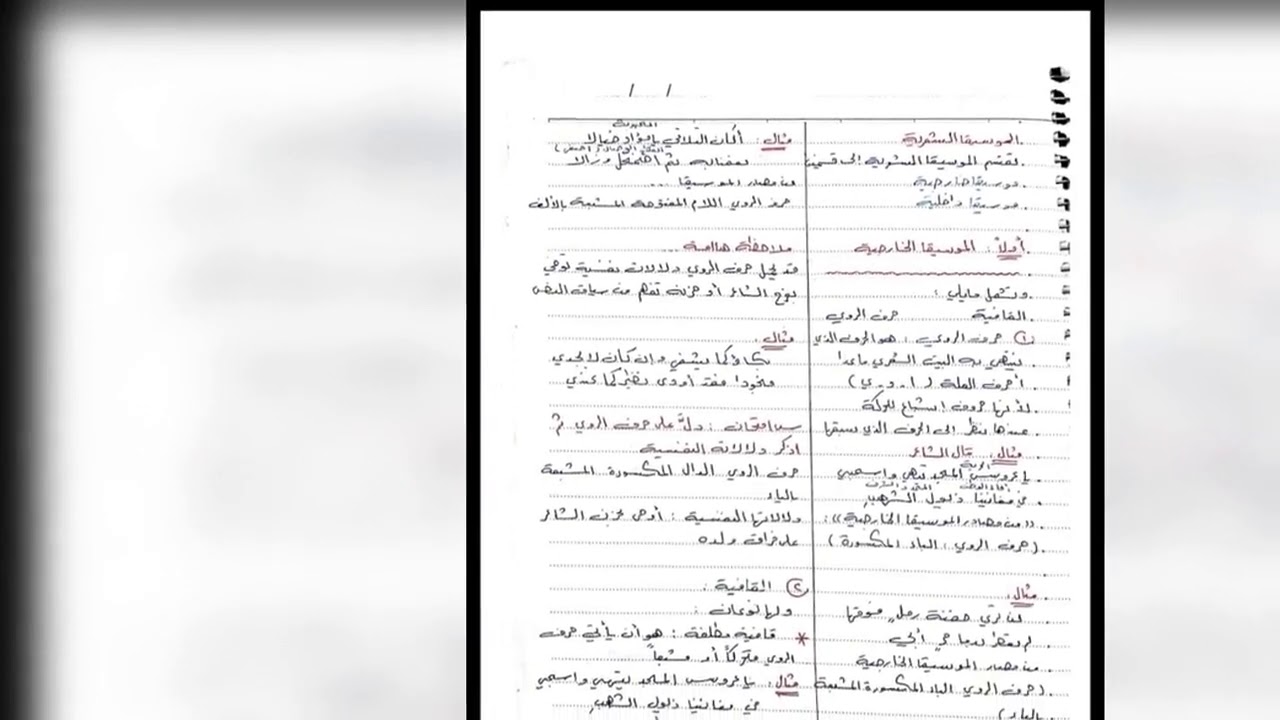 / /
الموسيقا الشعرية
تقسم الموسيقا الشعرية إلى قسمين
موسيقا خارجية
موسيقا داخلية
أولاً: الموسيقا الخارجية
وتشمل مايلي:
القافية حرف الروي
① حرف الروي: هو الحرف الذي
ينتهي به البيت الشعري ماعدا
أحرف العلة (ا. و. ي)
لأنها حروف إشباع للحركة
عندها ننظر إلى الحرف الذي يسبقها
مثال: قال الشاعر
يا عروس المجد تيهي واسحبي
في مغانينا ذيول الشهب
((من مصادر الموسيقا الخارجية)):
(حرف الروي: الباء المكسورة)
مثال:
لن تري حفنة رمل فوقها
لم تعطر بدما حر أبي
من مصادر الموسيقا الخارجية
(حرف الروي الباء المكسورة المشبعة
بالياء)
مثال: أكان التلاقي يا فؤاد خيالا
نعمنا به ثم اضمحل وزالا
من مصادر الموسيقا ...
حرف الروي اللام المفتوحة المشبعة بالألف
ملاحظة هامة
قد يحمل حرف الروي دلالات نفسية توحي
بفرح الشاعر أو حزنه تفهم من سياق النص
مثال:
بكاؤكما يشفي وإن كان لا يجدي
فجودا فقد أودى نظيركما عندي
س امتحان: دلّ على حرف الروي ثم
اذكر دلالاته النفسية
حرف الروي الدال المكسورة المشبعة
بالياء
دلالاتها النفسية: أوحى بحزن الشاعر
على فراق ولده
② القافية:
ولها نوعان:
* قافية مطلقة: هو أن يأتي حرف
الروي متحركاً أو مشبعاً
مثال: يا عروس المجد تيهي واسحبي
في مغانينا ذيول الشهب